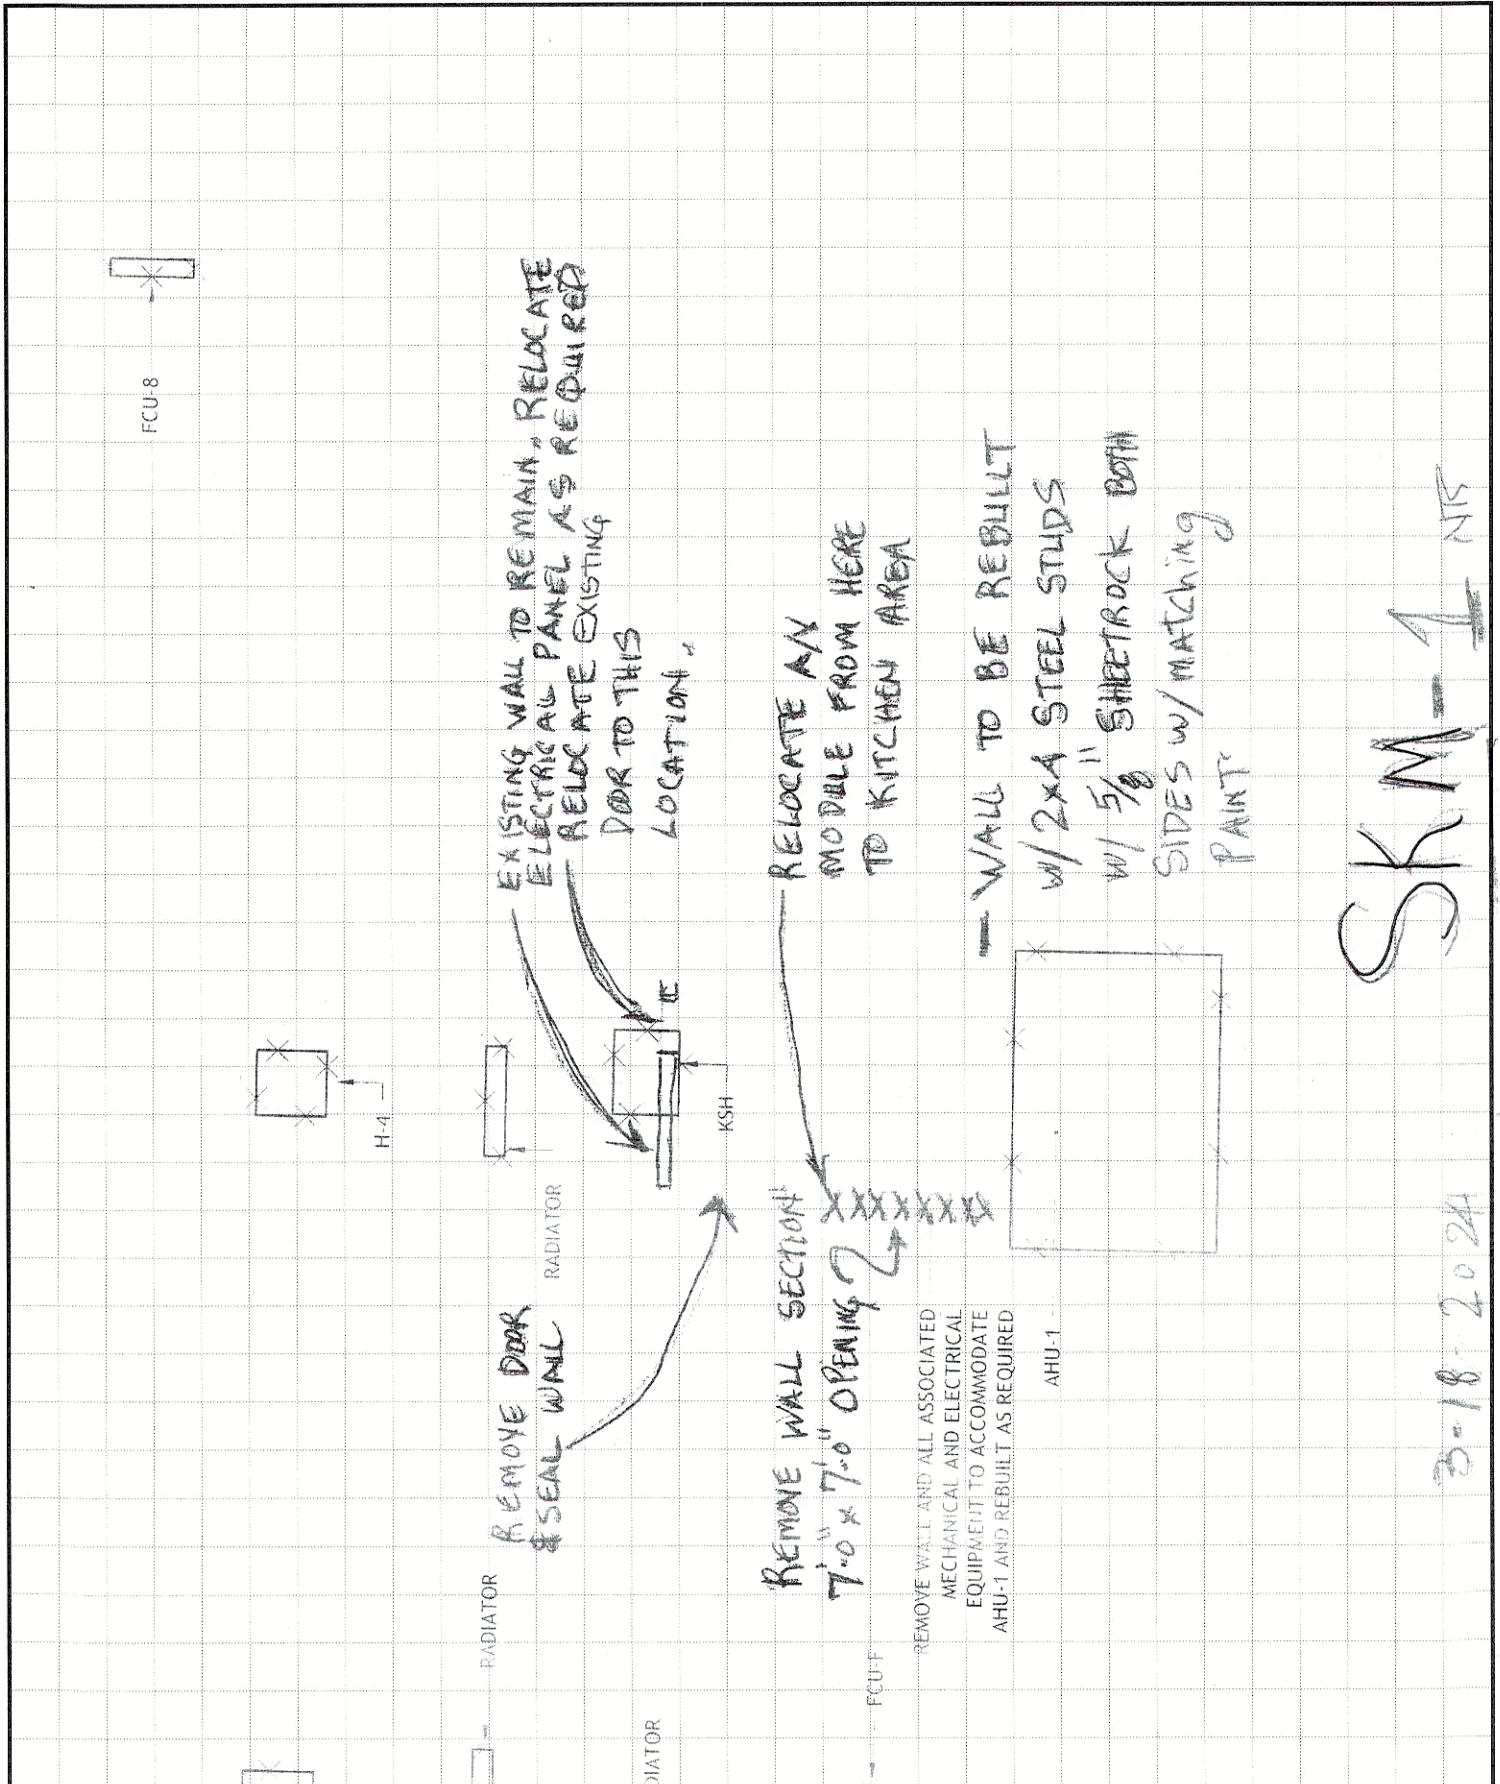 FCU-8
EXISTING WALL TO REMAIN. RELOCATE
ELECTRICAL PANEL AS REQUIRED
RELOCATE EXISTING
DOOR TO THIS
LOCATION.
H-4
RADIATOR
E
KSH
REMOVE DOOR
& SEAL WALL
RADIATOR
DIATOR
RELOCATE A/V
MODULE FROM HERE
TO KITCHEN AREA
REMOVE WALL SECTION
7'-0" x 7'-0" OPENING
XXXXXXX
FCU-F
REMOVE WALL AND ALL ASSOCIATED
MECHANICAL AND ELECTRICAL
EQUIPMENT TO ACCOMMODATE
AHU-1 AND REBUILT AS REQUIRED
AHU-1
— WALL TO BE REBUILT
W/ 2x4 STEEL STUDS
W/ 5/8" SHEETROCK BOTH
SIDES W/ MATChing
PAINT.
3-18-2024
SKM-1 NTS